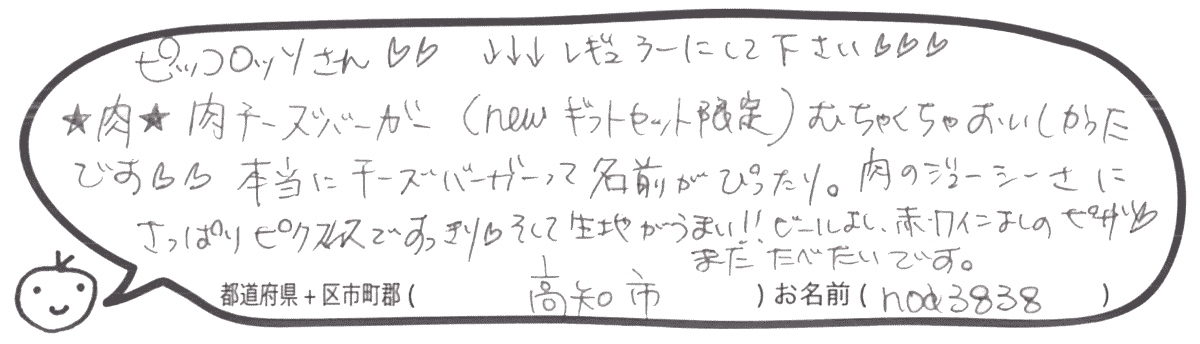 ピッコロッソさん♡♡ ↓↓↓レギュラーにして下さい♡♡♡
★肉★肉チーズバーガー(newギフトセット限定)むちゃくちゃおいしかった
です♡♡ 本当にチーズバーガーって名前がぴったり。肉のジューシーさに
さっぱりピクルスですっきり♡そして生地がうまい!!ビールよし、赤ワインよしのピザ♡
まだたべたいです。
都道府県+区市町郡( 高知市 )お名前(noa3838 )